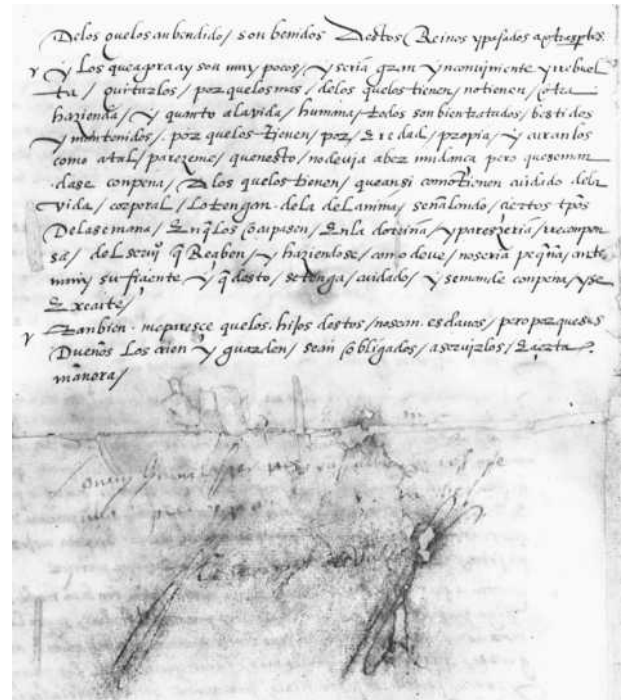 Delos quelos an bendido / son benidos Destos Reinos ypasados a otras ptes
y Los que agora ay son muy pocos / y seria gran ynconviniente y rebuel
ta / quitarlos / por quelos mas / delos quelos tienen / no tienen / otra
hazienda / y quanto ala vida / humana / todos son bien tratados / bestidos
y mantenidos / por quelos tienen / por / eredad / propia / y curan los
como a tal / pareçeme / quen esto / no devia aber mudança pero que seman
dase con pena / a los quelos tienen / que ansi como tienen cuidado dela
vida / corporal / Lo tengan dela del anima / señalando / ciertos tpos
Dela semana / En q Los ocupasen / En la dotrina / y paresçeria / rrecompen
sa / del serui q Reçiben / y haziendose / como deve / no seria pequña / ante
muy sufiçiente y q desto / se tenga / cuidado / y se mande con pena / y se
Exècute /
y Tanbien me paresce quelos hijos destos / no sean esclavos / pero por que sus
Dueños Los crien y guarden / sean obligados / a seruirlos / cierta
manera /